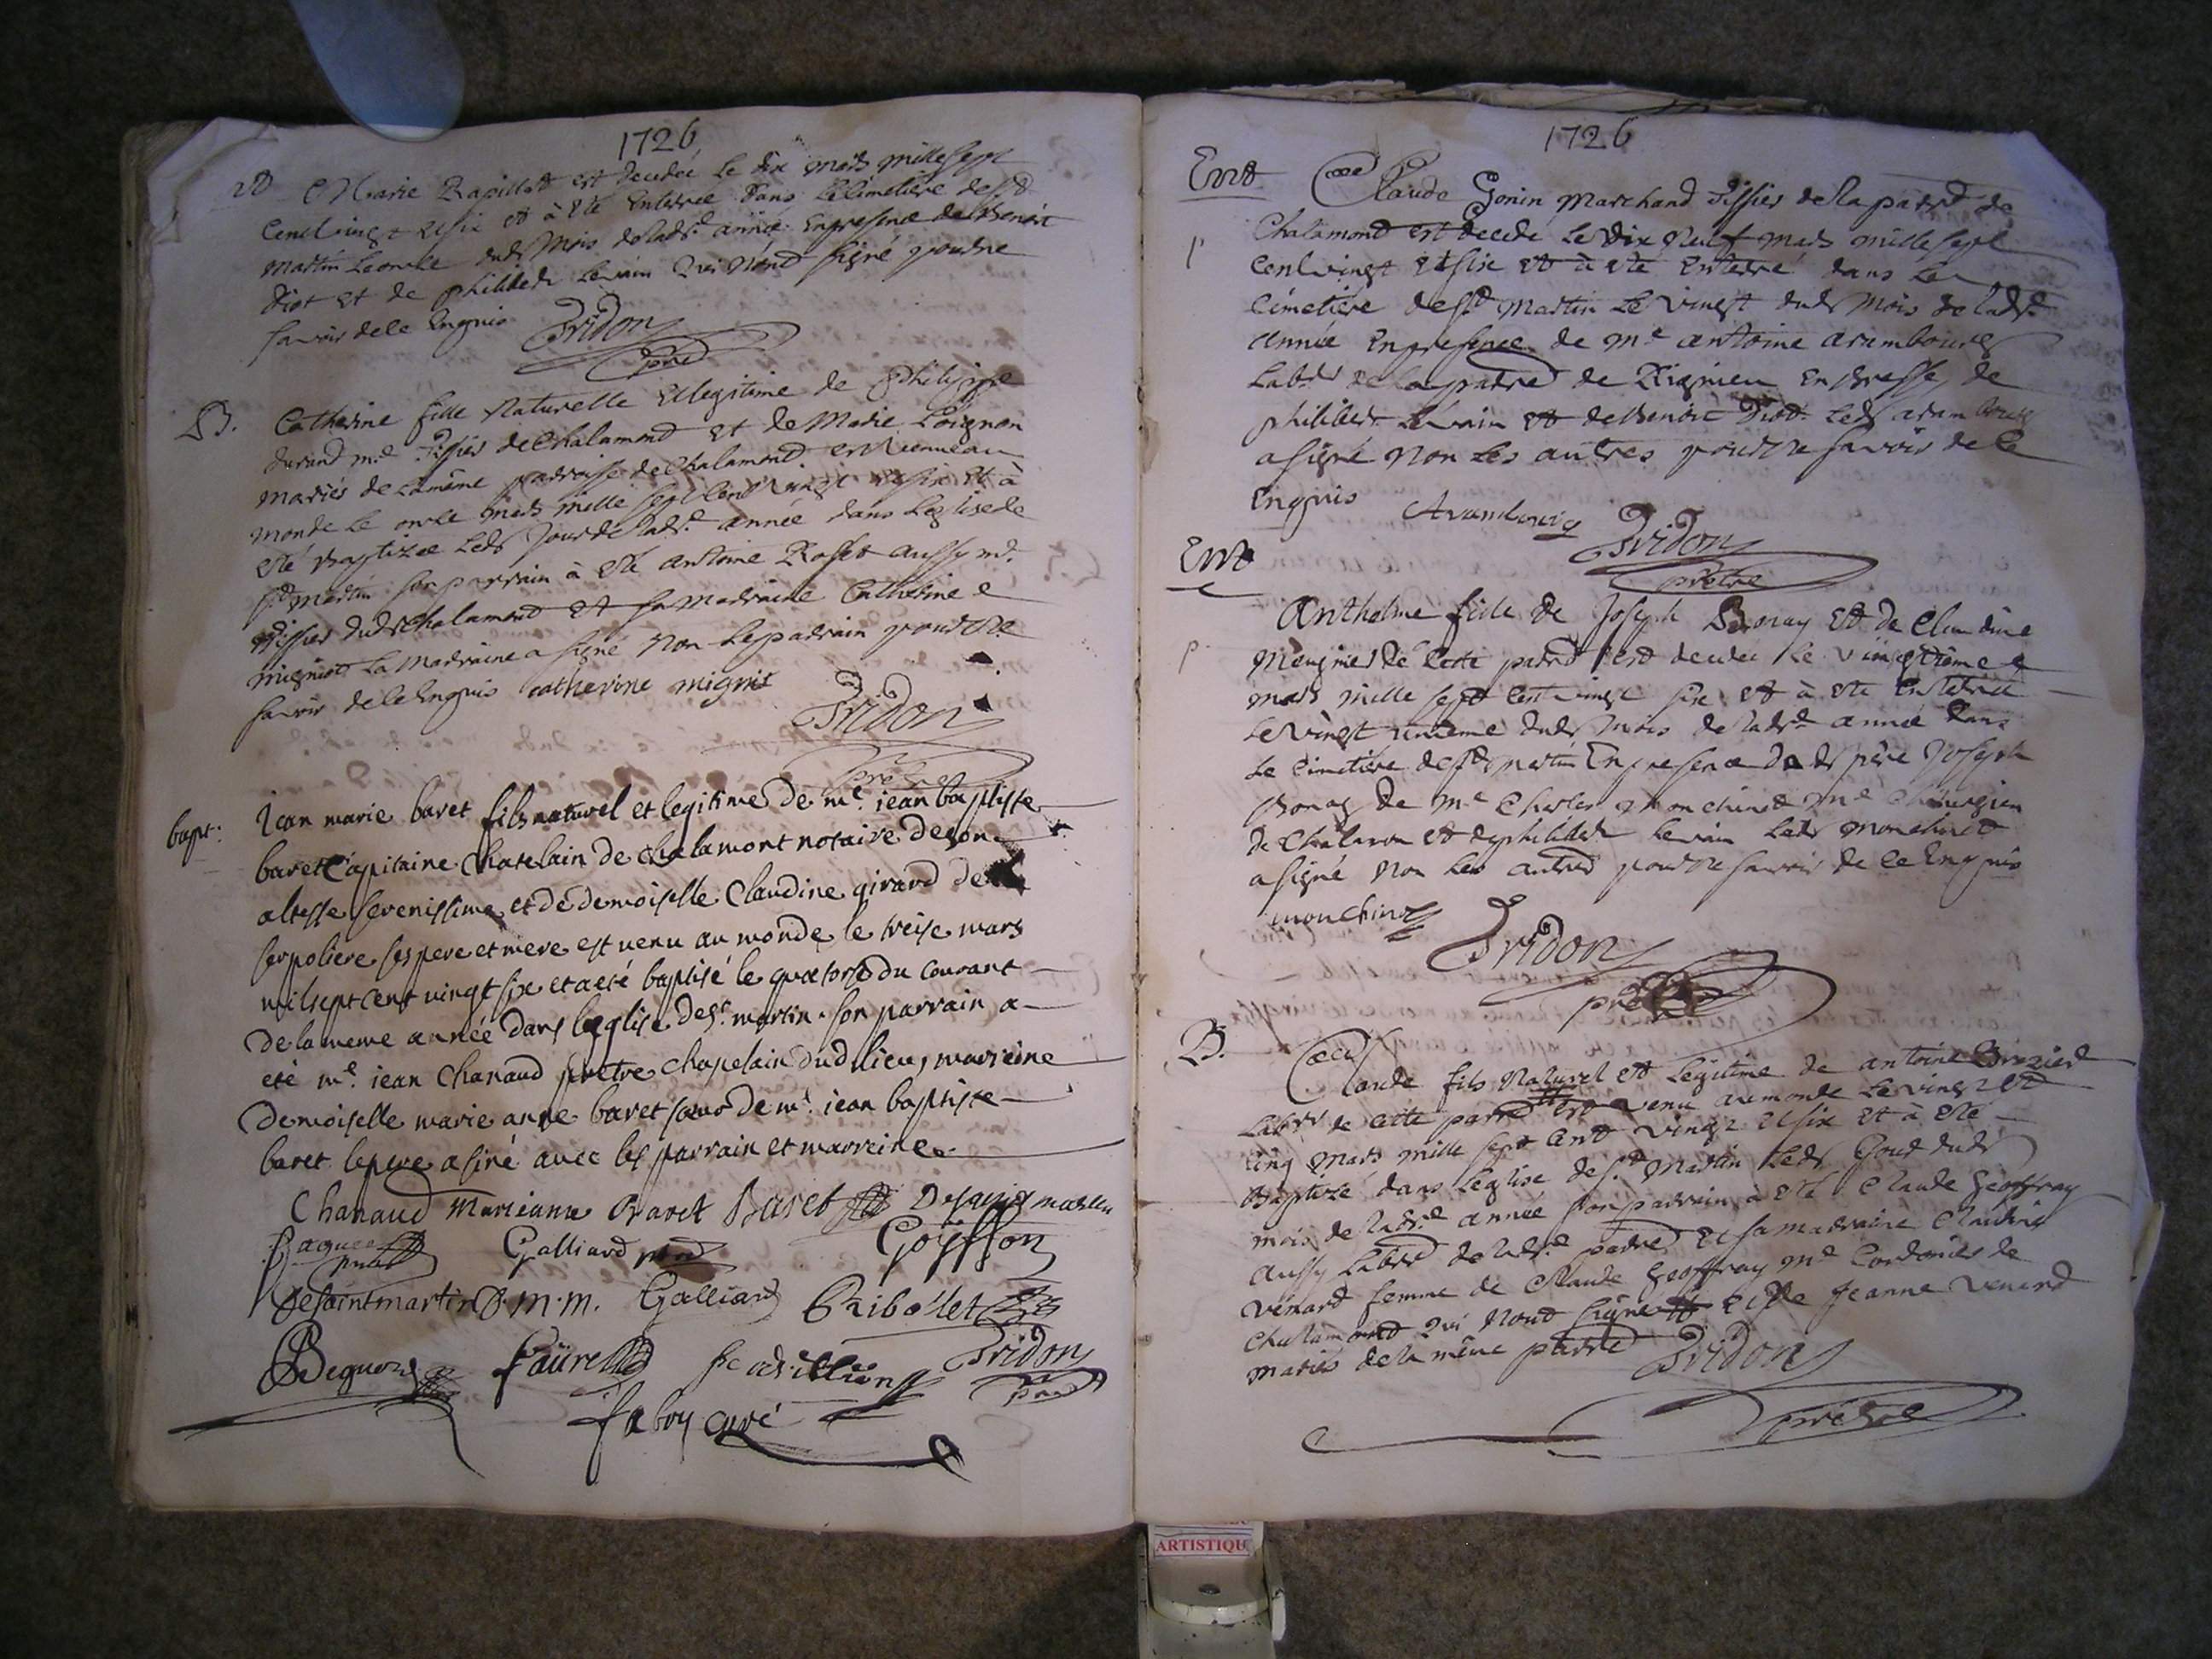 1726
Marie Rapillot est decedée le dix mars mille sept
cent vingt et six et à été enterrée dans le cimetière de st
martin le onzle dudt mois de ladte année en presence de Benoit
diot et de philibert levrain qui n'ont signé pour ne
savoir de ce enquis Pridon
ptre
B. Catherine fille naturelle et legitime de philippe
durand md tissier de chalamond et de marie Coignon
mariés de la même parroisse de chalamond est venue au
monde le onzle mars mille sept cent vingt et six et à
été baptizée ledt jour de ladte année dans l'eglise de
st martin son parrain à été antoine Rosset aussy md
tissier dudt chalamond et sa marraine Catherine
mignot la marraine a signé non le parrain pour ne
savoir de ce enquis catherine mignot
Pridon
prêtre
bapt: Jean marie baret fils naturel et legitime de me jean baptiste
baret Capitaine Chatelain de chalamont notaire de son
altesse serenissime et de demoiselle Claudine girard de
serpoliere ses pere et mere est venu au monde le treise mars
mil sept cent vingt six et a eté baptisé le quatorse du courant
de la meme année dans l'eglise de st martin son parrain a
eté me jean Chanaud prêtre chapelain dud lieu, mareine
demoiselle marie anne baret sœur de me jean baptiste
baret le pere a siné avec les parrain et marreine
Chanaud marianne Baret Baret
Galliard Goiffon
Desaintmartin D.m.m. Galliard Ribollet
Faure Pridon
ptre
fabry curé
1726
Ent Claude Gonin marchand tissier de la parrd de
chalamond est decedé le dix neuf mars mille sept
cent vingt et six et à été enterré dans le
cimetière de st martin le vingt dudt mois de ladte
année en presence de me antoine arambourg
labr de la parrd de Rignieu en bresse, de
philibert levrain et de benoit diot ledt arambourg
a signé non les autres pour ne savoir de ce
enquis Arambourg Pridon
prêtre
Ent
Anthelme fille de Joseph Bonay et de claudine
de cette parrd est decedée le vingtième
mars mille sept cent vingt six et à été enterrée
le vingt unième dudt mois de ladte année dans
le cimetière de st martin en presence dudt père joseph
Bonay de me charles monchinet me chirurgien
de chalamon et de philibert levrain ledt monchinet
a signé non les autres pour ne savoir de ce enquis
monchinet Pridon
prêtre
B. Claude fils naturel et legitime de antoine
labr de cette parrd est venu au monde le vingt et
cinq mars mille sept cent vingt et six et à été
baptizé dans l'eglise de st martin ledt jour dudt
mois de ladte année son parrain à été claude Geoffray
aussy labr de ladte parrd et sa marraine claudine
venard femme de claude Geoffray md cordonier de
chalamond qui n'ont signé et de jeanne venard
mariés de la même parrd Pridon
prêtre